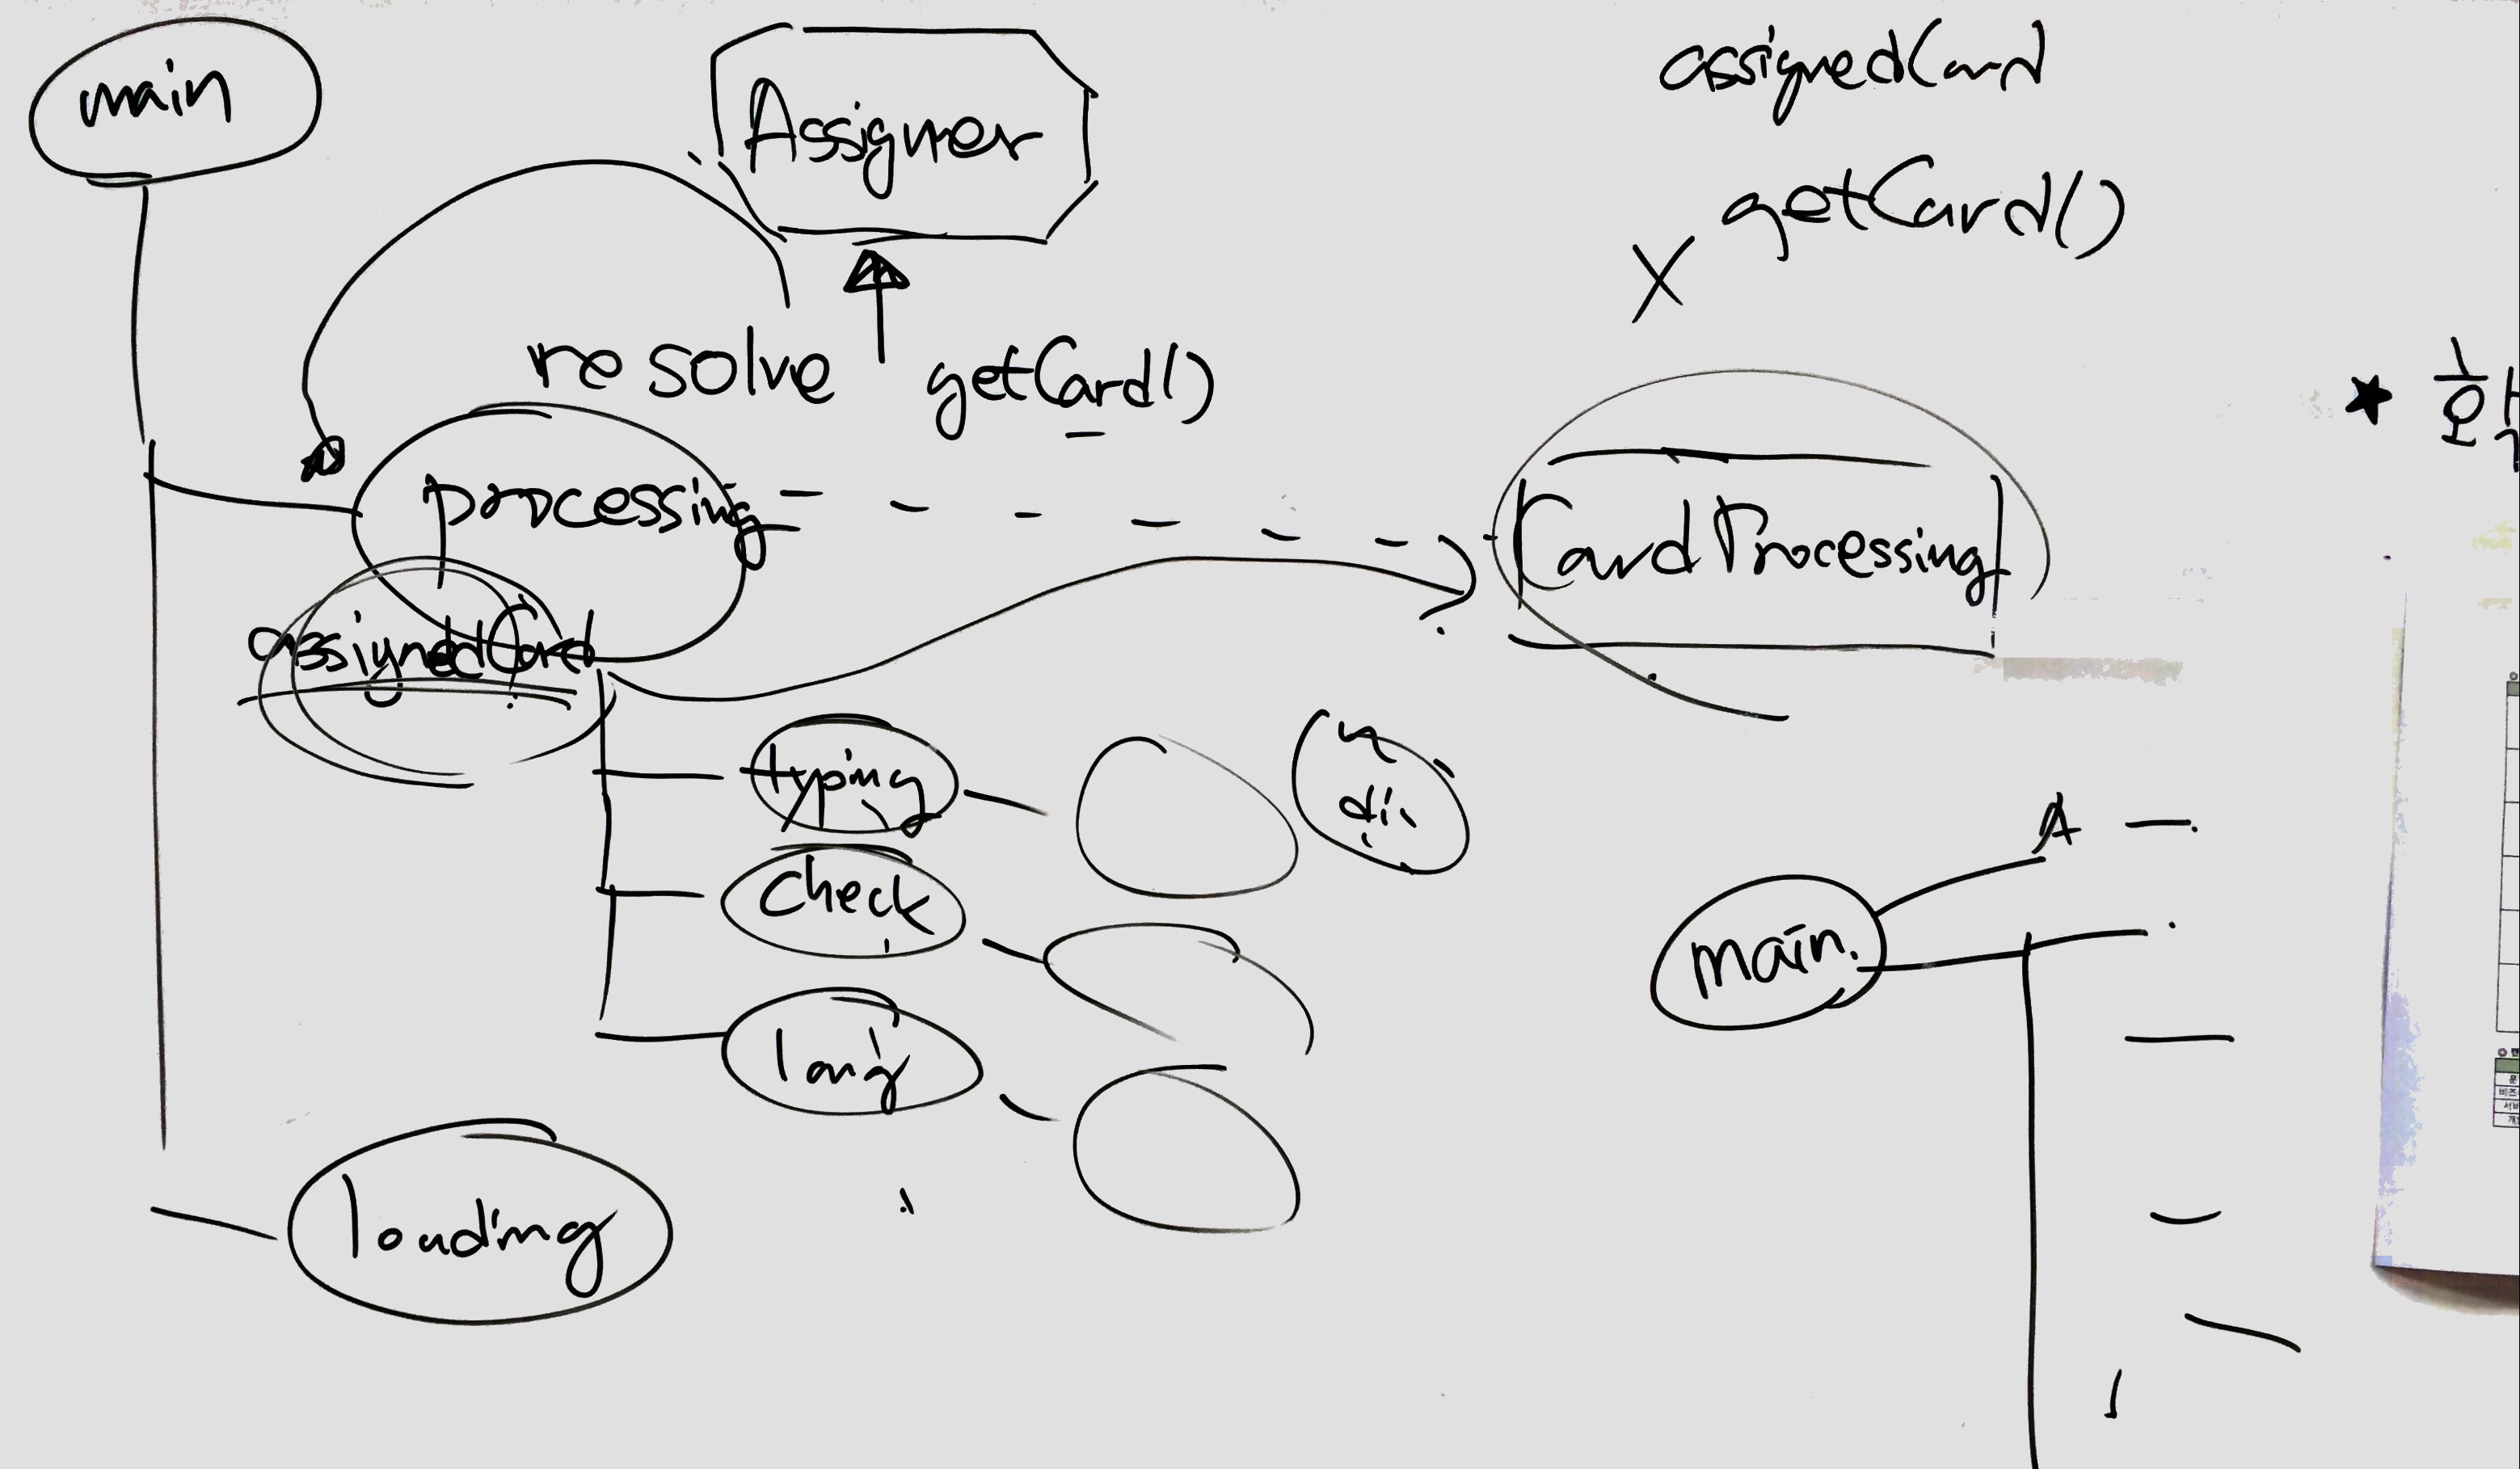 main
Assigner
assignedCard
getCard()
X
resolve
getCard()
processing
CardProcessing
assignedCard
typing
check
lang
loading
A
main.